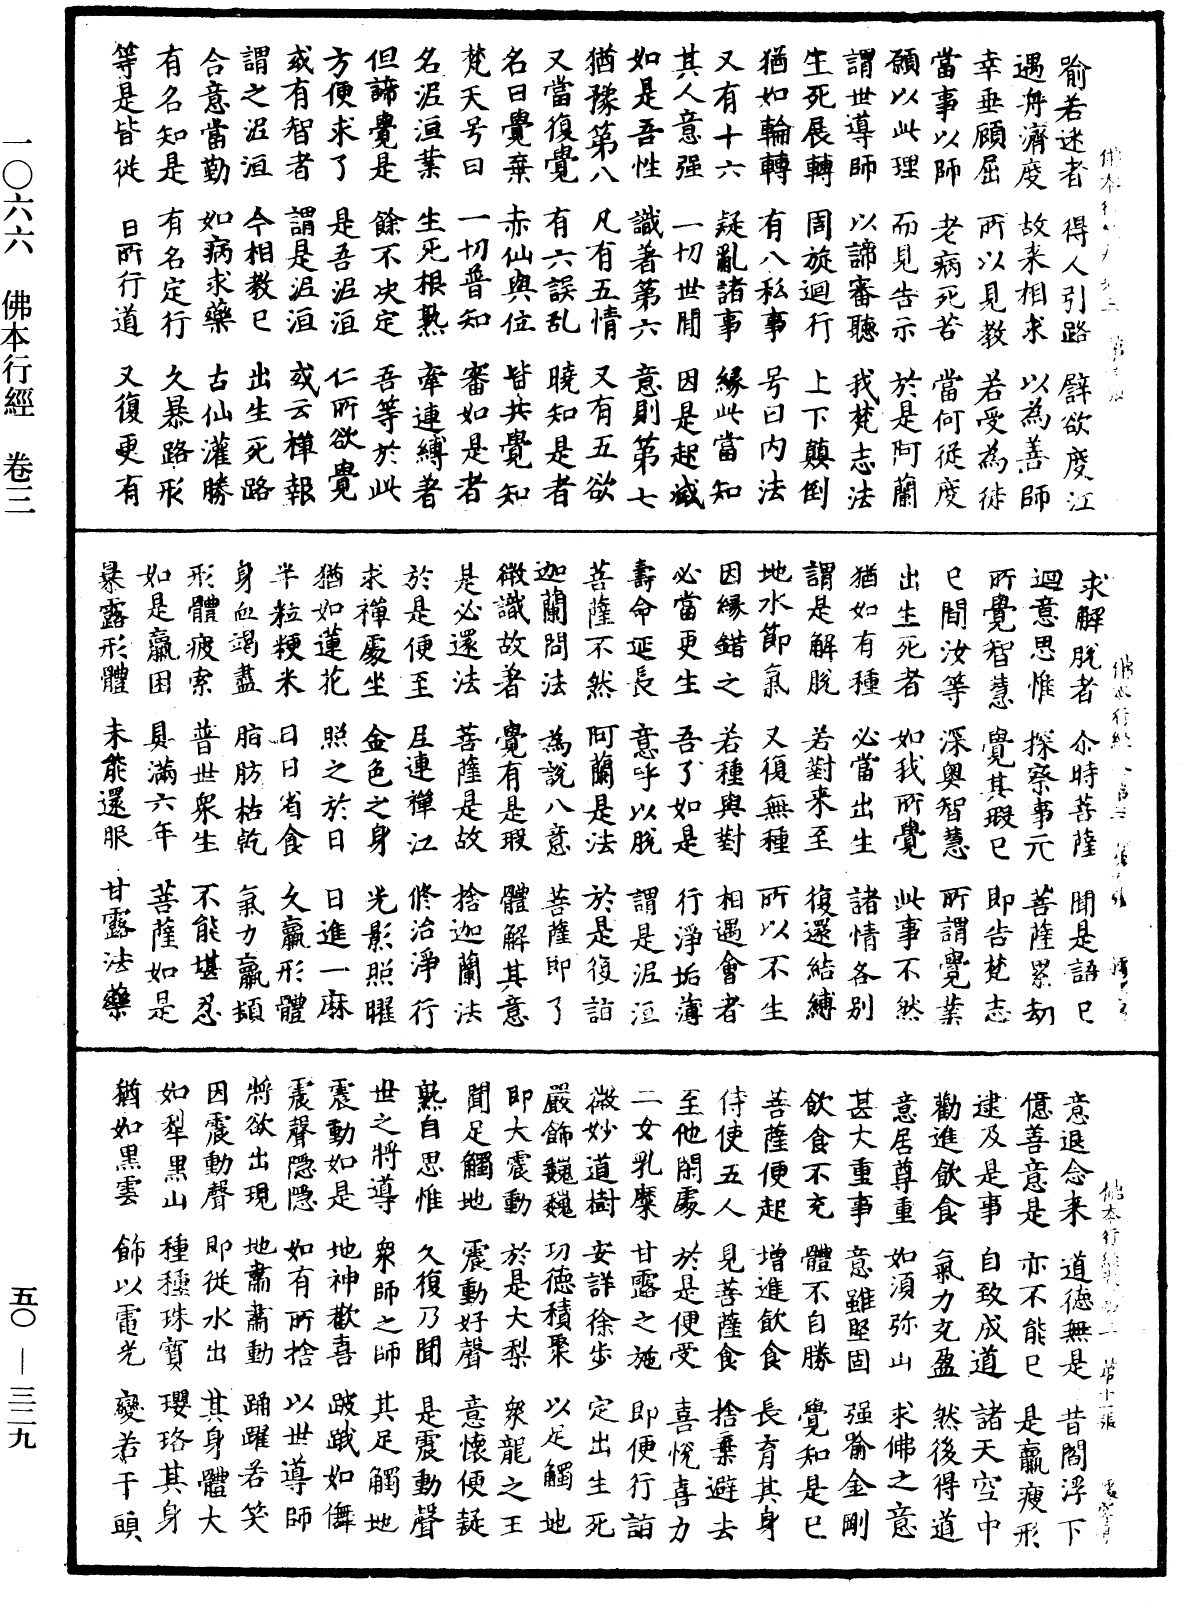 一〇六六　佛本行經　卷三
五〇—三二九
喻若迷者　得人引路　譬欲度江
遇舟濟度　故来相求　以為善師
幸垂顧屈　所以見教　若受為徒
當事以師　老病死苦　當何從度
願以此理　而見告示　於是阿蘭
謂世導師　以諦審聽　我梵志法
生死展轉　周旋迴行　上下顛倒
猶如輪轉　有八私事　号曰内法
又有十六　疑亂諸事　緣此當知
其人意强　一切世間　因是起滅
如是吾性　識著第六　意則第七
猶豫第八　凡有五情　又有五欲
又當復覺　有六誤乱　曉知是者
名曰覺棄　赤仙與位　皆共覺知
梵天号曰　一切普知　審如是者
名泥洹葉　生死根熟　牽連縛著
但諦覺是　餘不决定　吾等於此
方便求了　是吾泥洹　仁所欲覺
或有智者　謂是泥洹　或云禅報
謂之泥洹　今相教已　出生死路
合意當勤　如病求藥　古仙灌勝
有名知是　有名定行　久暴路形
等是皆從　日所行道　又復更有
求解脱者　尒時菩薩　聞是語已
迴意思惟　探察事元　菩薩累劫
所覺智慧　覺其瑕已　即告梵志
已聞汝等　深奥智慧　所謂覺業
出生死者　如我所覺　此事不然
猶如有種　必當出生　諸情各别
謂是解脱　若對来至　復還結縛
地水節氣　又復無種　所以不生
因緣錯之　若種與對　相遇會者
必當更生　吾了如是　行淨垢薄
壽命延長　意呼以脱　謂是泥洹
菩薩不然　阿蘭是法　於是復詣
迦蘭問法　為說八意　菩薩即了
微識故著　覺有是瑕　體解其意
是必還法　菩薩是故　捨迦蘭法
於是便至　尼連禪江　修治淨行
求禪處坐　金色之身　光影照曜
猶如蓮花　照之於日　日進一麻
半粒粳米　日日省食　久羸形體
身血竭盡　脂肪枯乾　氣力羸損
形體疲索　普世衆生　不能堪忍
如是羸困　具滿六年　菩薩如是
暴露形體　未能還服　甘露法藥
意退念来　道德無是　昔閻浮下
億善意是　亦不能已　是羸瘦形
逮及是事　自致成道　諸天空中
勸進飲食　氣力充盈　然後得道
意居尊重　如須弥山　求佛之意
甚大重事　意雖堅固　强喻金剛
飲食不充　體不自勝　覺知是已
菩薩便起　增進飲食　長育其身
侍使五人　見菩薩食　捨棄避去
至他閑處　於是便受　喜悅喜力
二女乳糜　甘露之施　即便行詣
微妙道樹　安詳徐步　定出生死
嚴飾巍巍　功德積聚　以足觸地
即大震動　於是大梨　衆龍之王
聞足觸地　震動好聲　意懷便疑
熟自思惟　久復乃聞　是震動聲
世之將導　衆師之師　其足觸地
震動如是　地神歡喜　跛踤如儛
震聲隱隱　如有所捨　以世導師
將欲出現　地肅肅動　踊躍若笑
因震動聲　即從水出　其身體大
如犁黑山　種種珠寶　瓔珞其身
猶如黑雲　飾以電光　變若干頭